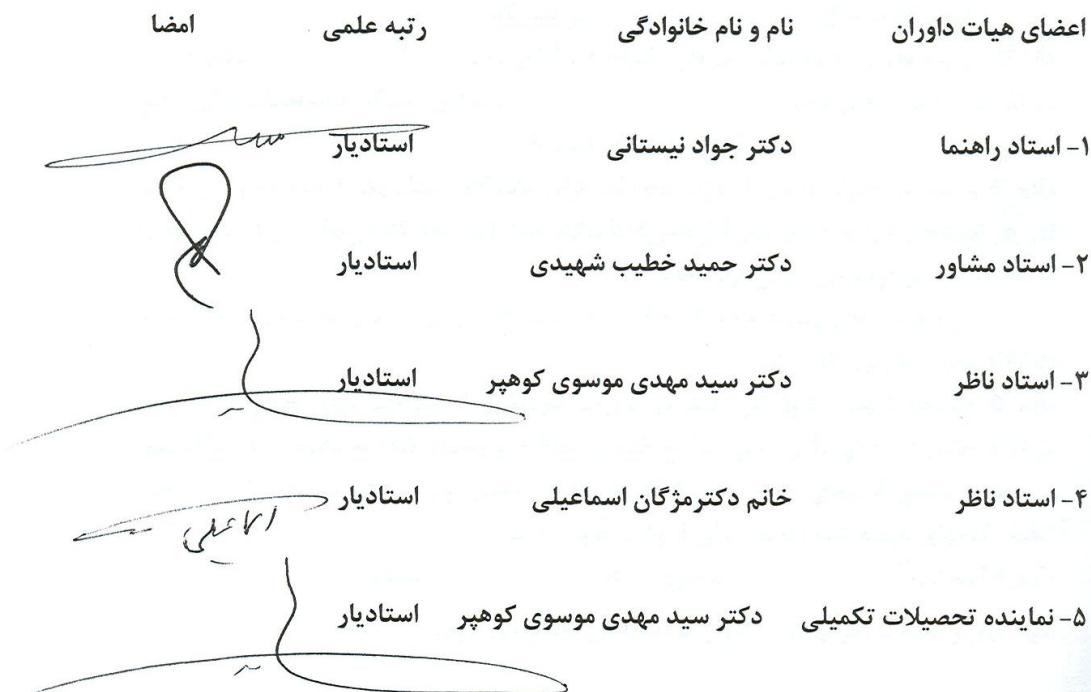 اعضای هیات داوران نام و نام خانوادگی رتبه علمی امضا
۱- استاد راهنما دکتر جواد نیستانی استادیار
۲- استاد مشاور دکتر حمید خطیب شهیدی استادیار
۳- استاد ناظر دکتر سید مهدی موسوی کوهپر استادیار
۴- استاد ناظر خانم دکترمژگان اسماعیلی استادیار
۵- نماینده تحصیلات تکمیلی دکتر سید مهدی موسوی کوهپر استادیار